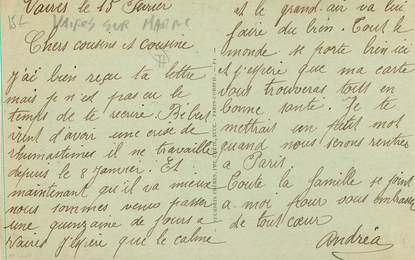 Vaires le 15 Fevrier
VAIRES SUR MARNE
Chers cousins et cousine
j'ai bien reçu ta lettre
mais je n'ai pas eu le
temps de te
vient d'avoir une crise de
rhumastimes il ne travaille
depuis le 8 janvier. Et
maintenant qu'il va mieux
nous sommes venus passer
une quinzaine de jours a
Vaires j'espère que le calme
et le grand air va lui
faire du bien. Tout le
monde se porte bien ici
et j'espère que ma carte
vous trouveras tous en
bonne santé. Je te
mettrais un petit mot
quand nous serons rentrer
a Paris.
Toute la famille se joint
a moi pour vous embrasser
de tout cœur
Andréa